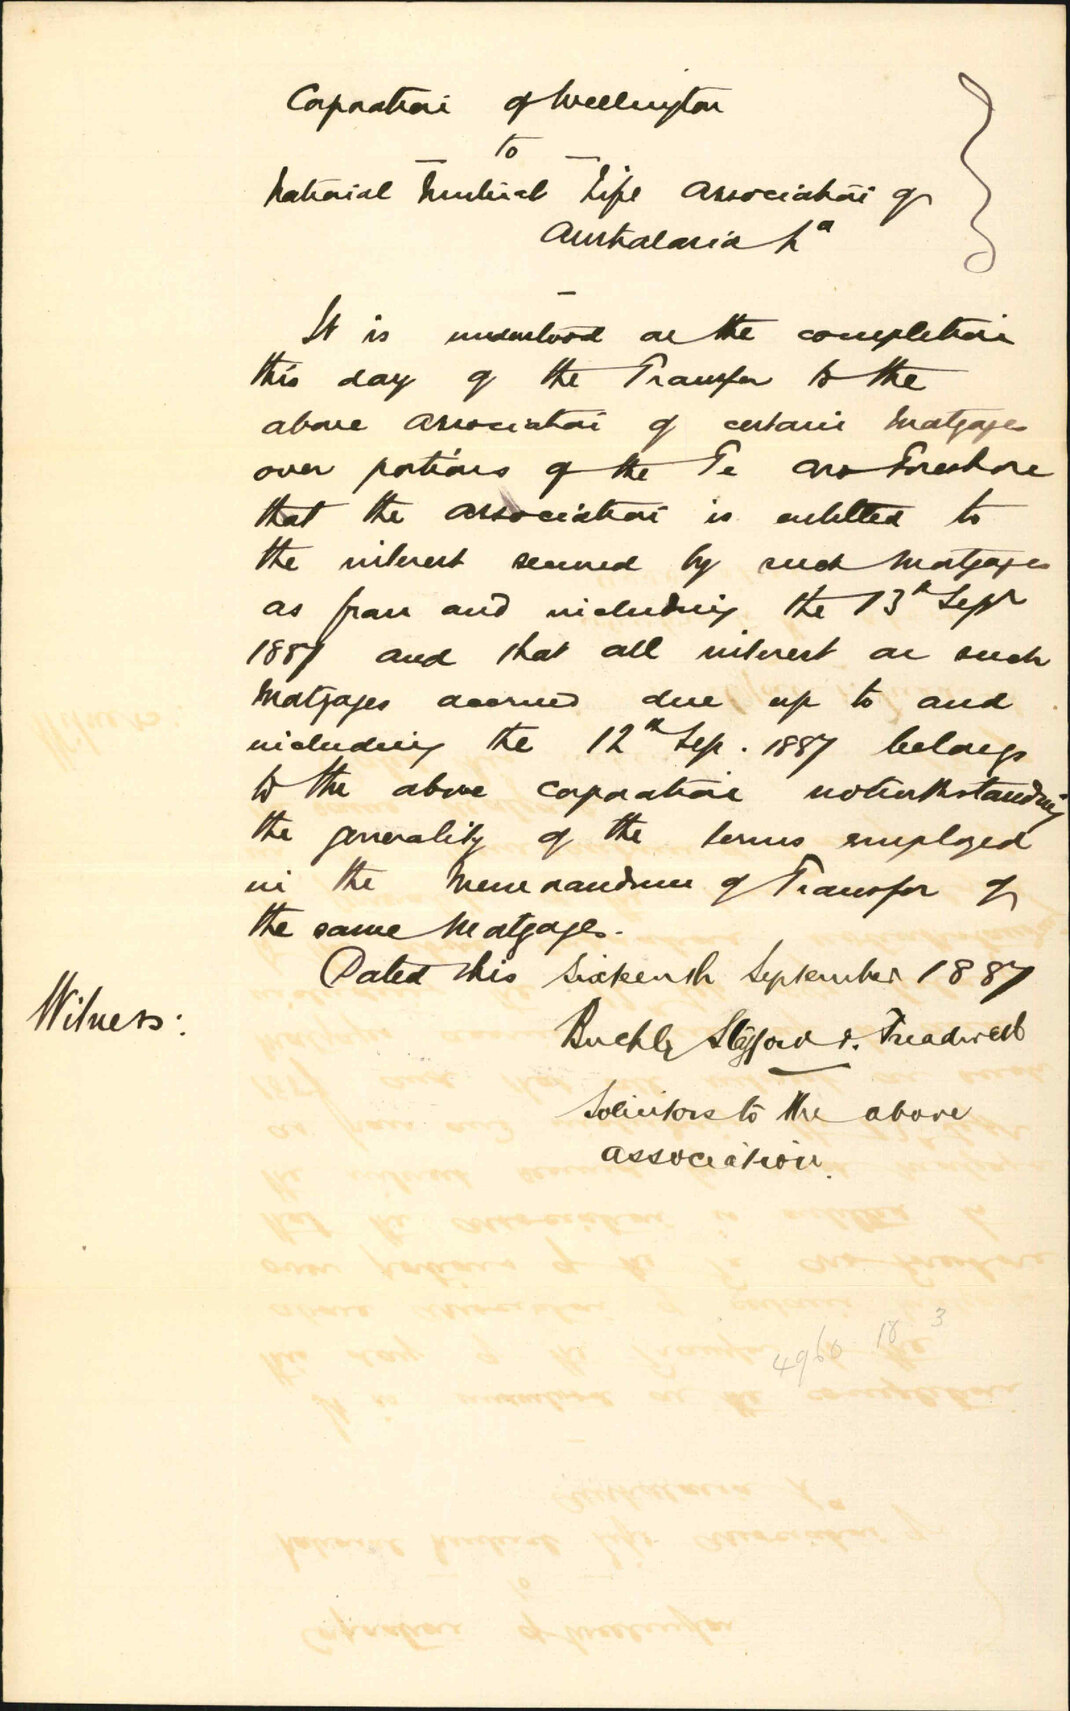 Corporation of Wellington
to
National Mutual Life Association of
Australasia Ld
It is understood on the completion
this day of the Transfer to the
above Association of certain Mortgages
over portions of the Te Aro Foreshore
that the Association is entitled to
the interest secured by such Mortgages
as from and including the 13th Sepr
1887 and that all interest on such
Mortgages accrued due up to and
including the 12th Sep. 1887 belongs
to the above corporation notwithstanding
the generality of the terms employed
in the Memorandum of Transfer of
the same Mortgages.
Dated this Sixteenth September 1887
Witness:
Buckley Stafford & Treadwell
Solicitors to the above
association.
4960 18 3